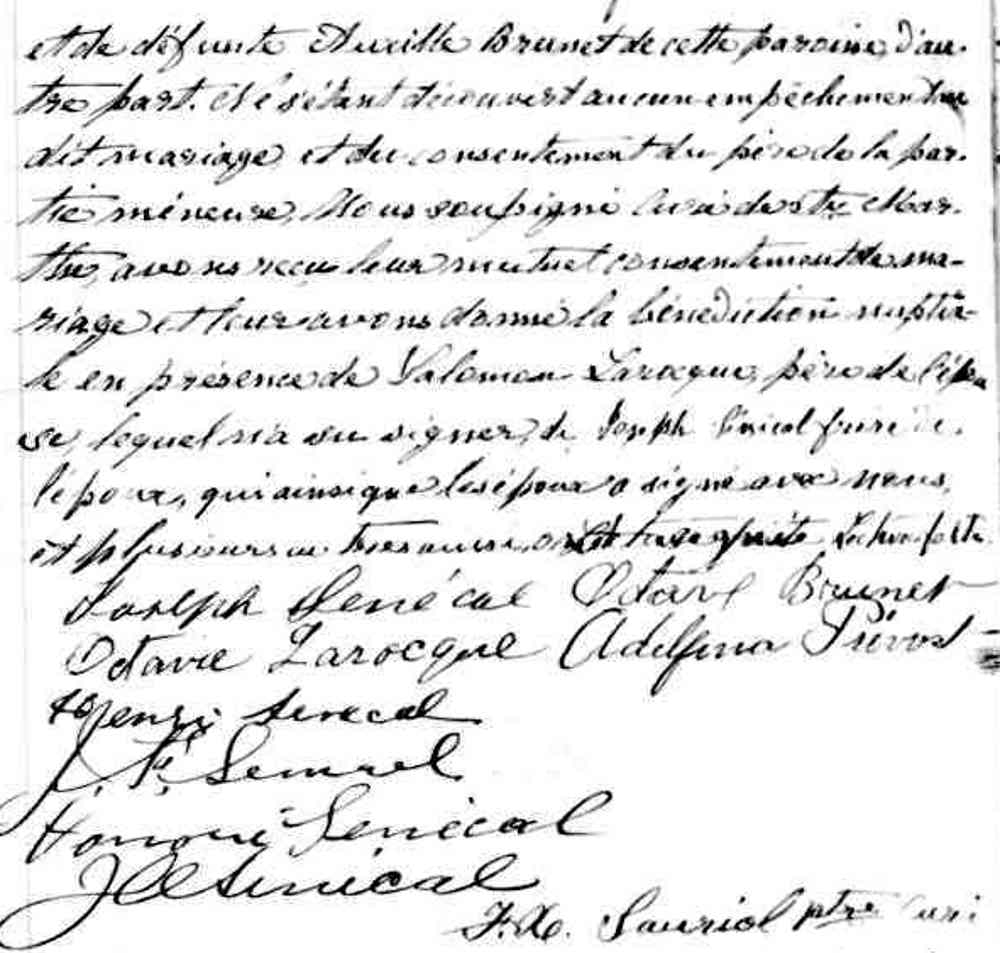 et de défunte Auxille Brunet de cette paroisse, d'au-
tre part. Ne s'étant découvert aucun empêchement au
dit mariage et du consentement du père de la par-
tie mineure, Nous soussigné Curé de Ste Mar-
the, avons reçu leur mutuel consentement de ma-
riage et leur avons donné la bénédiction nuptia-
le en présence de Salomon Larocque, père de l'épou
se, lequel n'a su signer, de Joseph Sénécal frère de
l'époux, qui ainsi que les époux a signé avec nous,
et plusieurs autres aussi. Lecture faite.
Joseph Senécal Octave Brunet
Octavie Larocque Adelfina Prévost
Henri Senecal
J. F. Senecal
Honoré Senécal
J A Senécal
F. X. Sauriol ptre curé